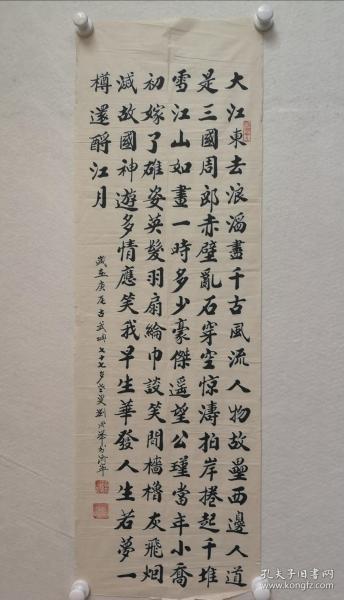 大江東去浪淘盡千古風流人物故壘西邊人道
是三國周郎赤壁亂石穿空惊濤拍岸捲起千堆
雪江山如畫一時多少豪傑遥望公瑾當年小喬
初嫁了雄姿英髮羽扇綸巾談笑間檣櫓灰飛烟
滅故國神遊多情應笑我早生華發人生若夢一
樽還酹江月
歲在庚辰古武 七十七岁 叟劉
孔夫子旧书网